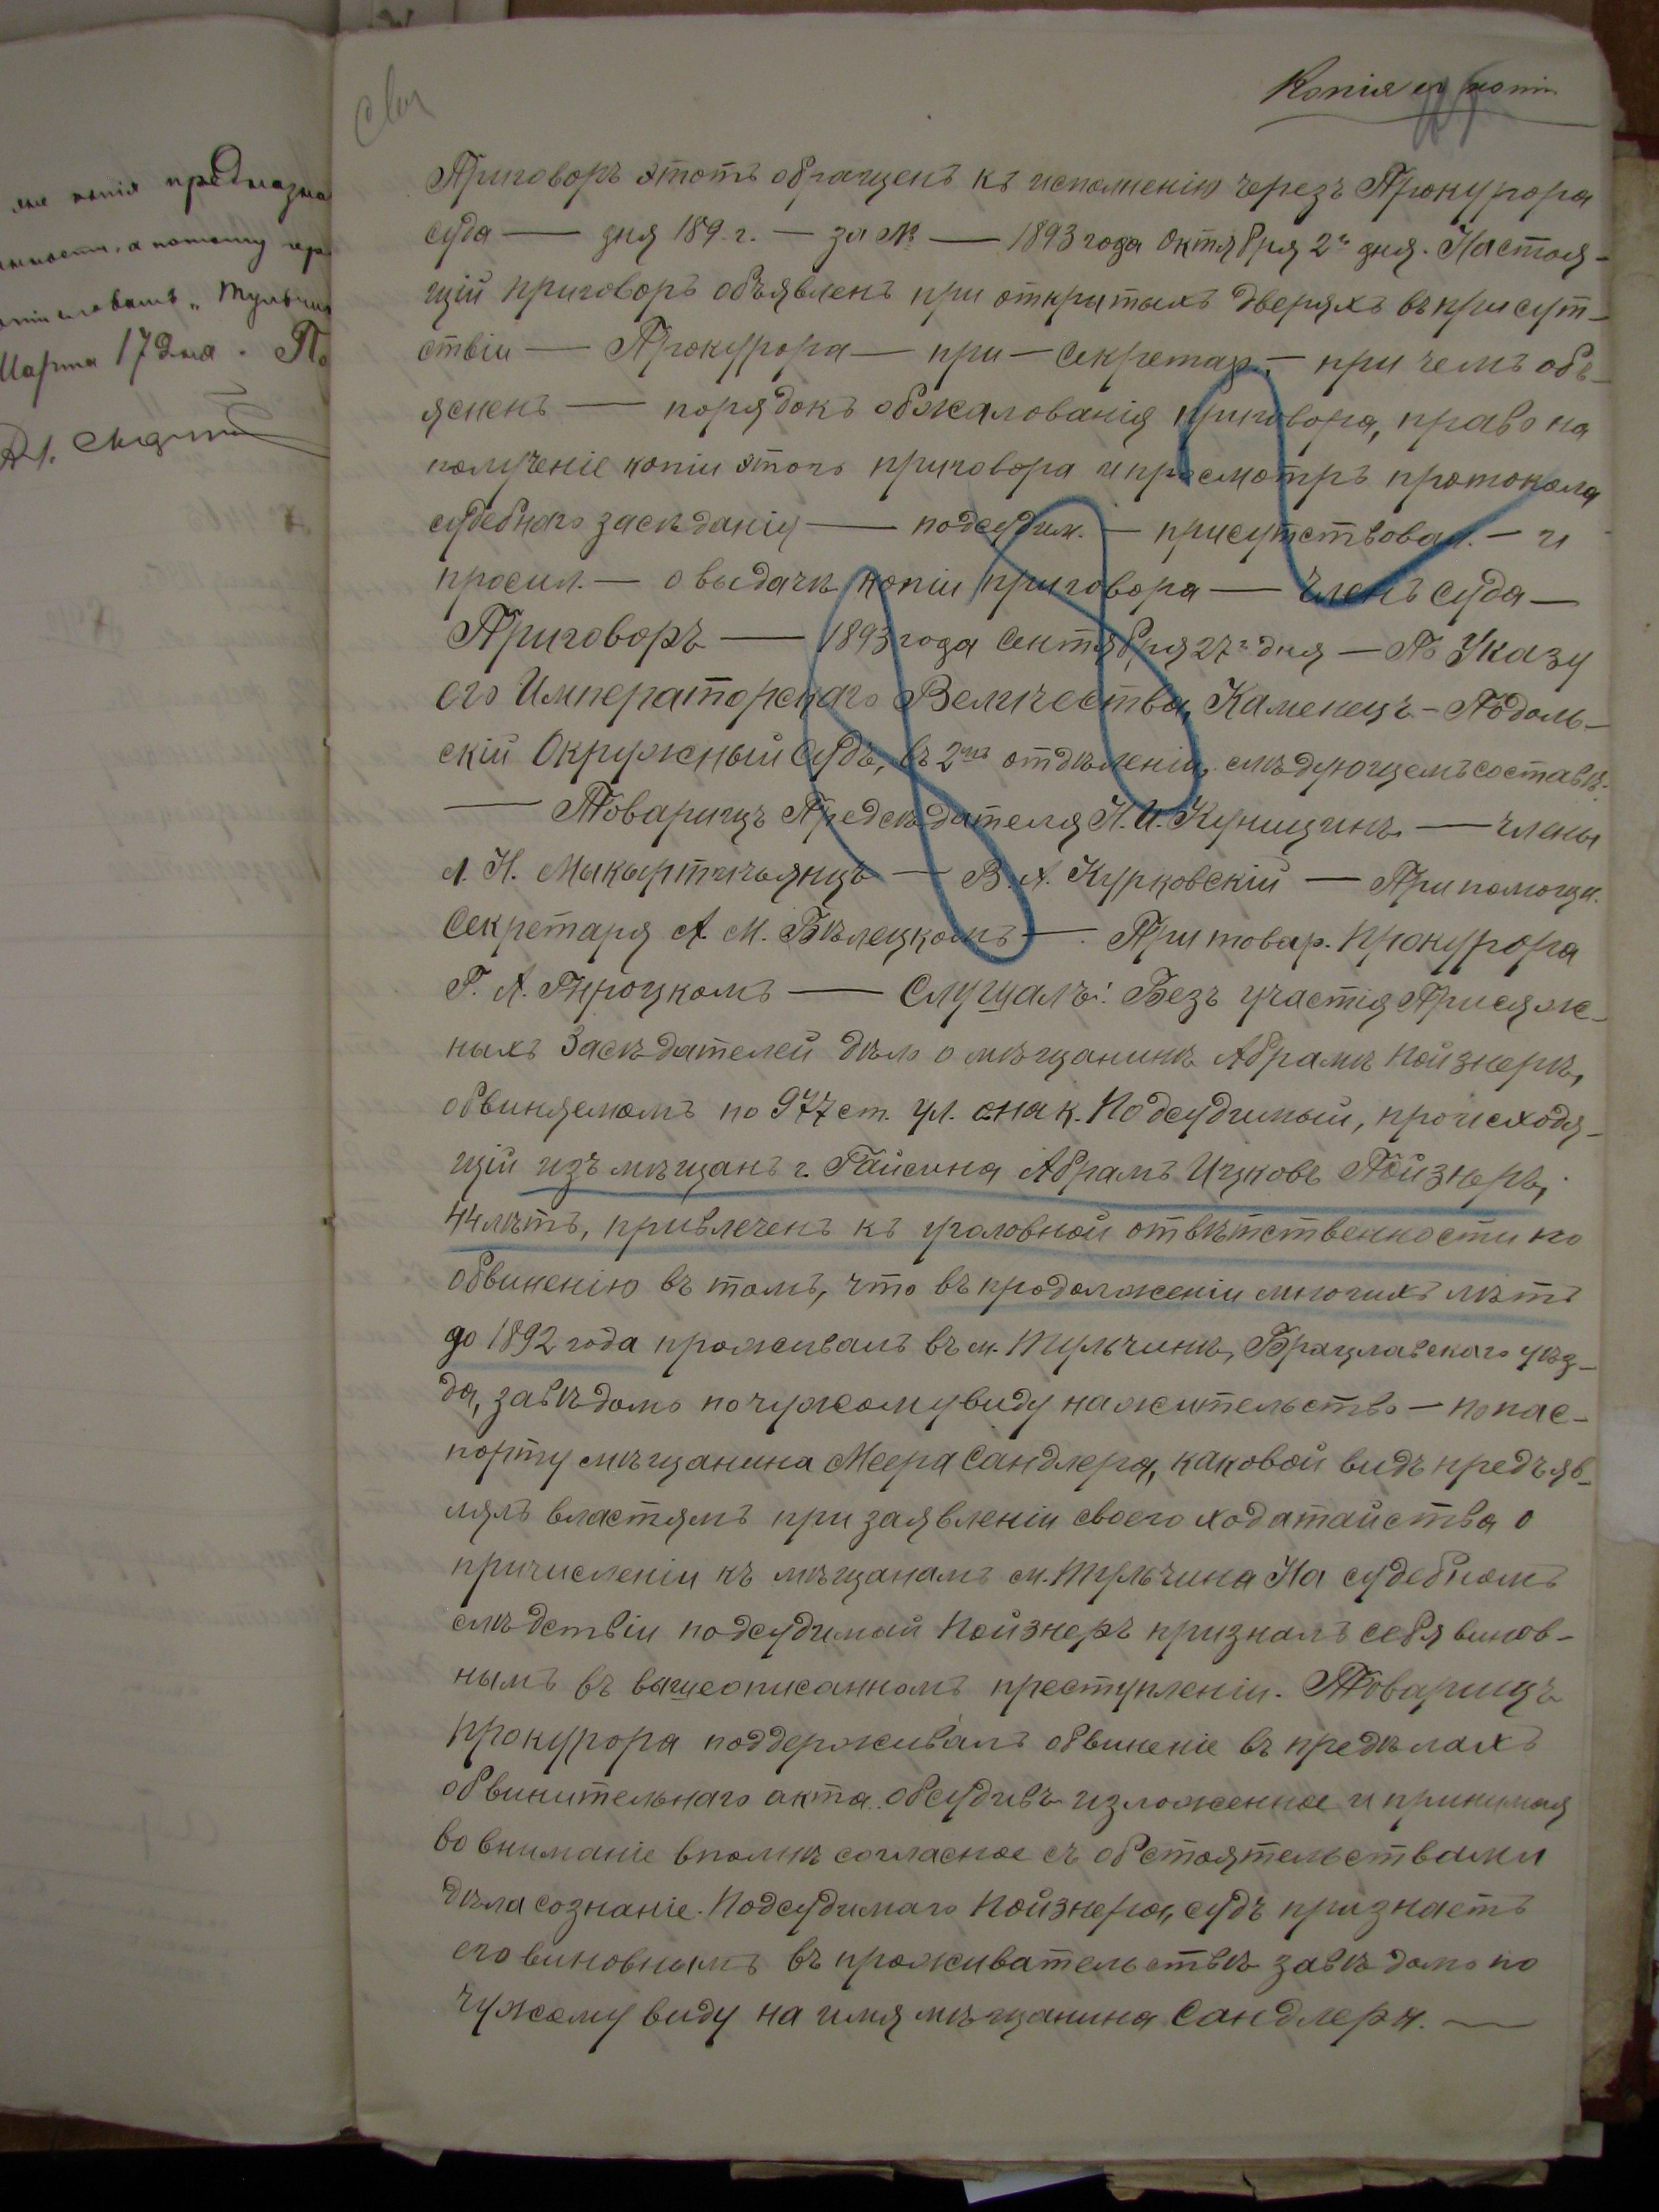 Копія съ копіи
Приговоръ этотъ обращенъ къ исполненію черезъ Прокурора
суда — дня 189. г. — за № — 1893 года Октября 2го дня. Настоя-
щій приговоръ объявленъ при открытыхъ дверяхъ въ присут-
ствіи — Прокурора — при — Секретар. — при чемъ объ-
ясненъ — порядокъ обжалованія приговора, право на
полученіе копіи этого приговора и просмотръ протокола
судебнаго засѣданія — подсудим. — присутствовал. — и
просил. — о выдачѣ копіи приговора — Членъ суда —
Приговоръ — 1893 года Сентября 27го дня — По Указу
его Императорскаго Величества, Каменецъ-Подоль-
скій Окружный Судъ, въ 2мъ отдѣленіи, слѣдующемъ составѣ:
— Товарищъ Предсѣдателя Н. И. Куницинъ. — члены
Л. Н. Мыкыртичьянцъ — В. А. Курковскій — При помощн.
Секретаря А. М. Бѣлецкомъ — При товар. Прокурора
Г. А. — Слушалъ: Безъ участія Присяж-
ныхъ Засѣдателей дѣло о мѣщанинѣ Абрамѣ Пойзнерѣ,
обвиняемомъ по 977 ст. ул. о нак. Подсудимый, происходя-
щій изъ мѣщанъ г. Гайсина Абрамъ Ицковъ Пойзнеръ,
44 лѣтъ, привлеченъ къ уголовной отвѣтственности по
обвиненію въ томъ, что въ продолженіи многихъ лѣтъ
до 1892 года проживалъ въ м. Тульчинѣ, Брацлавскаго уѣз-
да, завѣдомо по чужому виду на жительство — по пас-
порту мѣщанина Меера Сандлера, каковой видъ предъяв-
лялъ властямъ при заявленіи своего ходатайства о
причисленіи къ мѣщанамъ м. Тульчина На судебномъ
слѣдствіи подсудимый Пойзнеръ призналъ себя винов-
нымъ въ вышеописанномъ преступленіи. Товарищъ
прокурора поддерживалъ обвиненіе въ предѣлахъ
обвинительнаго акта. Обсудивъ изложенное и принимая
во вниманіе вполнѣ согласное съ обстоятельствами
дѣла сознаніе. Подсудимаго Пойзнера, судъ признаетъ
его виновнымъ въ проживательствѣ завѣдомо по
чужому виду на имя мѣщанина Сандлера. —